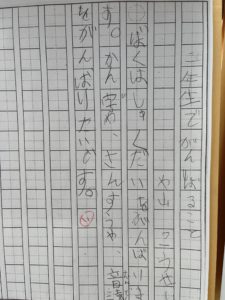 二年生でがんばること
ぼくはしゅくだいをがんばりま
す。かん字や、さんすうや、音読
をがんばりたいです。